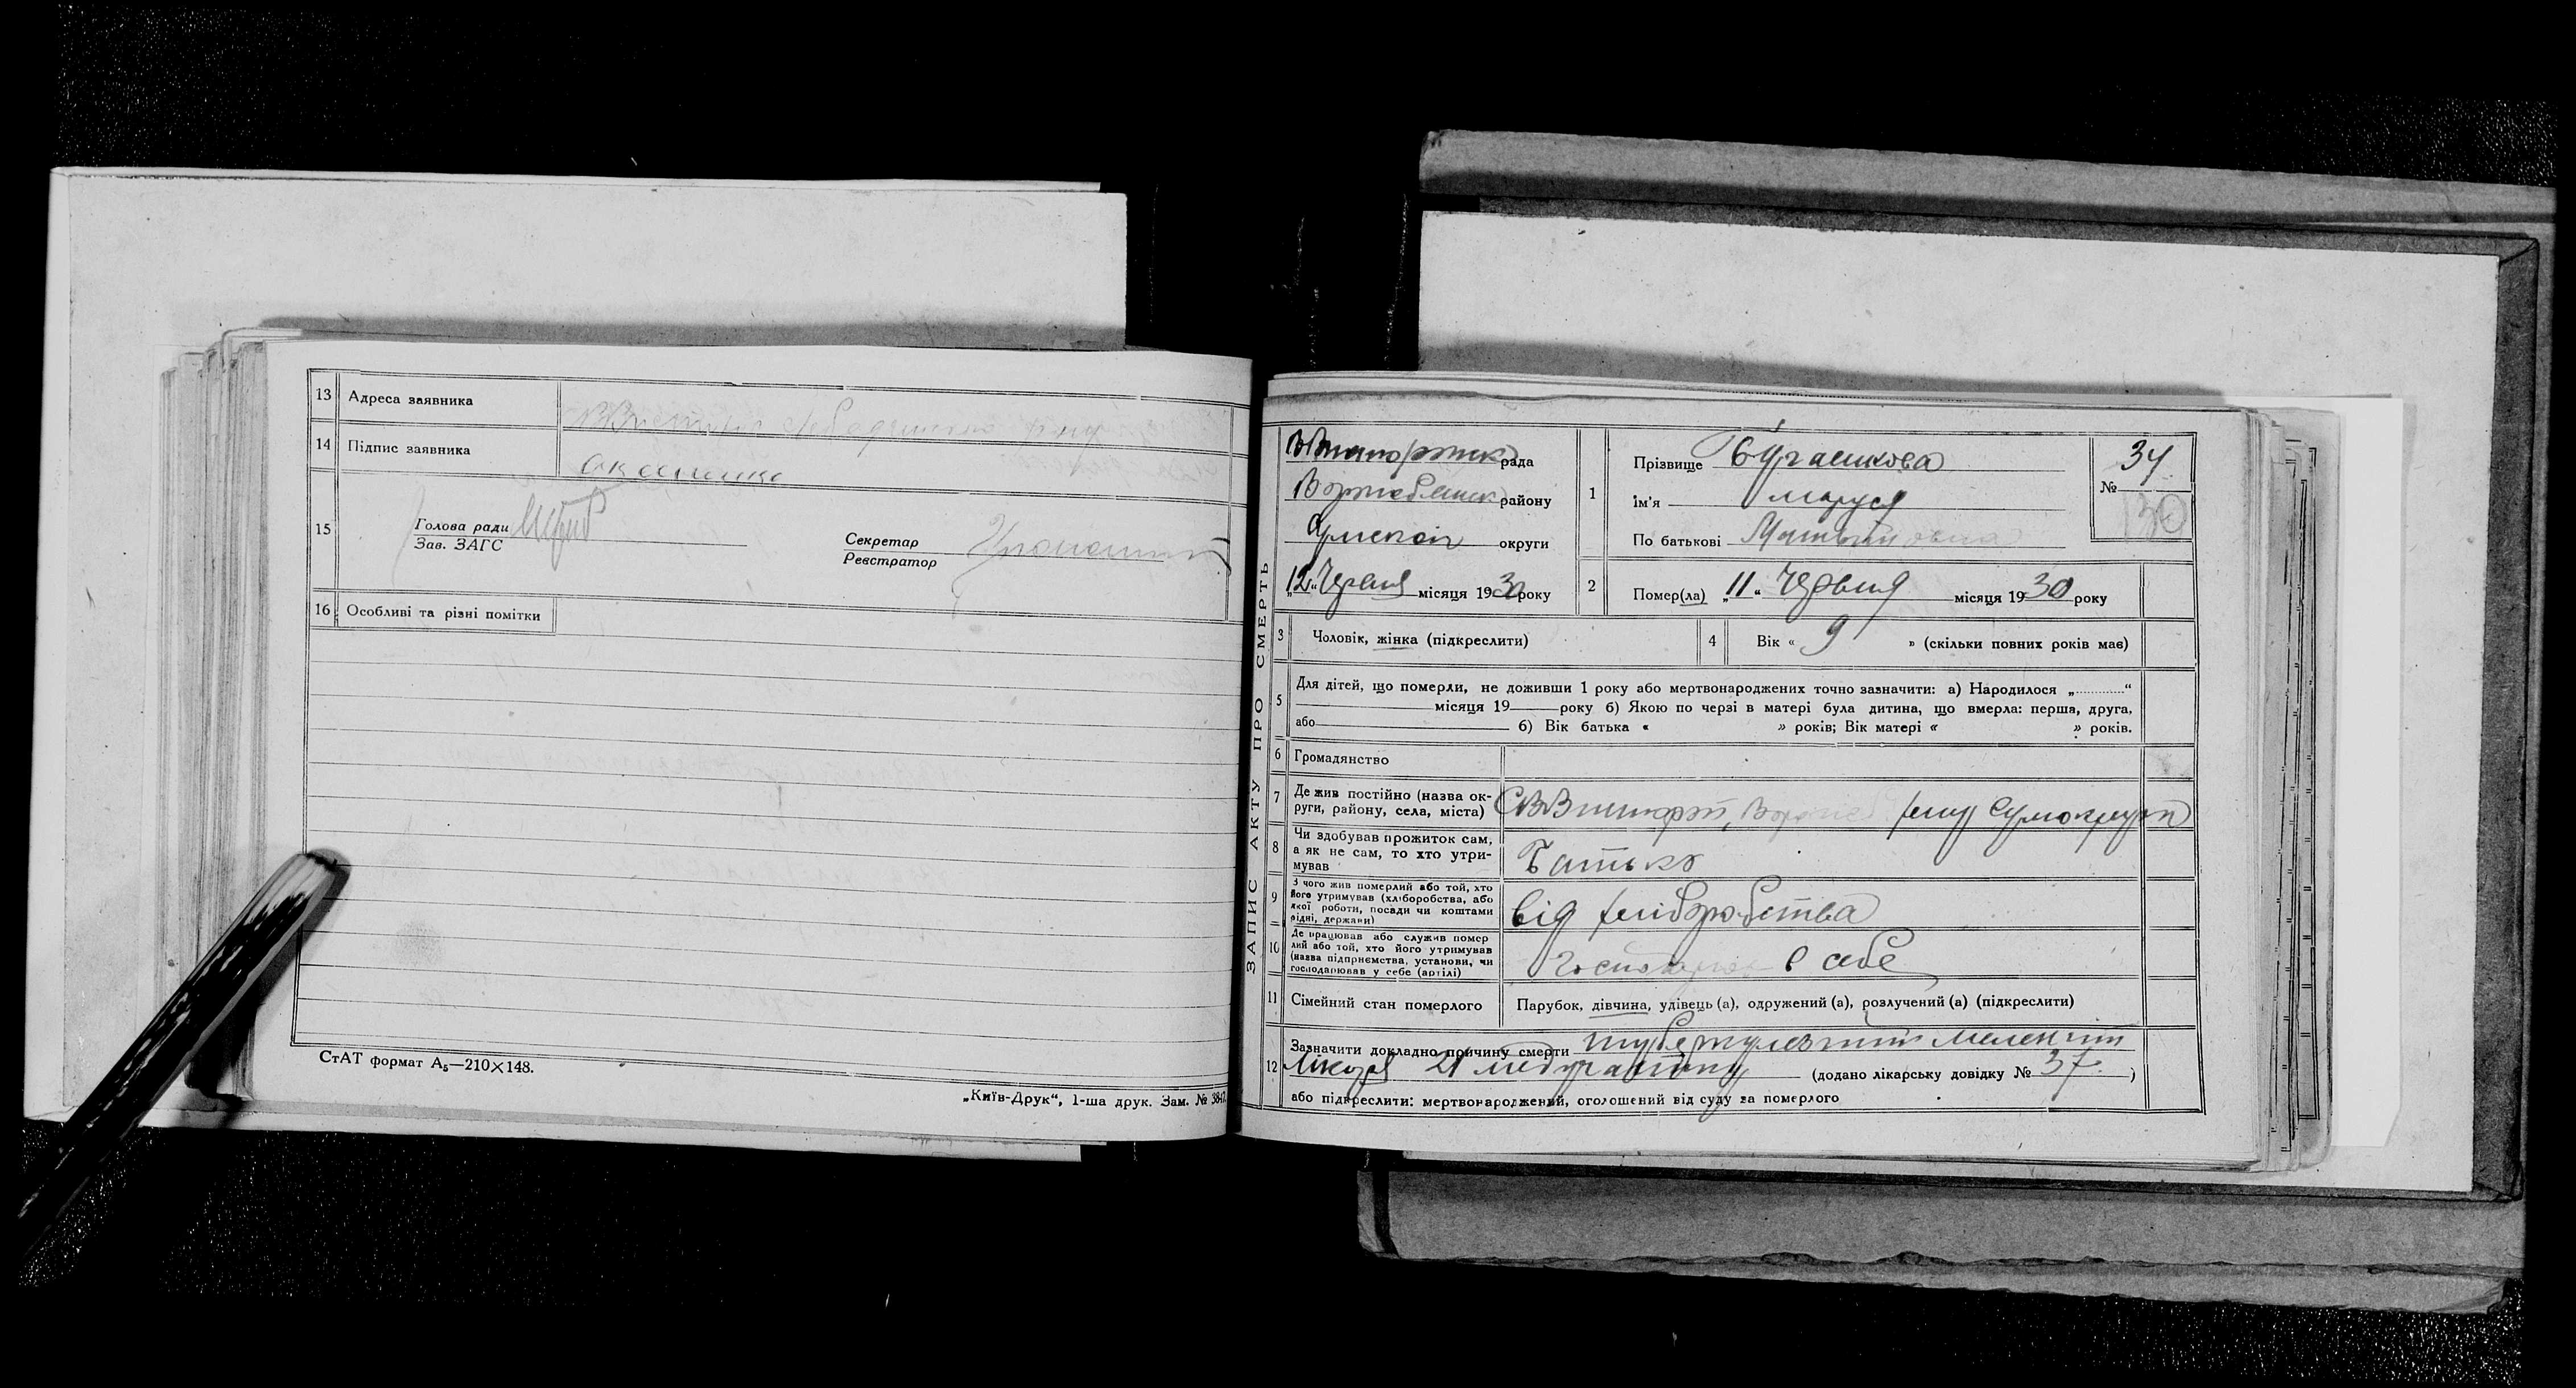 13 Адреса заявника
14 Підпис заявника
15 Голова ради
Зав. ЗАГС
Секретар
Реєстратор
16 Особливі та різні помітки
СтАТ формат А₅—210×148.
„Київ-Друк“, 1-ша друк. Зам. №
ЗАПИС АКТУ ПРО СМЕРТЬ
рада
району
округи
„12“ Червня місяця 1930 року
1 Прізвище
Ім'я Маруся
По батькові
№ 34
130
2 Помер(ла) „11“ Червня місяця 1930 року
3 Чоловік, жінка (підкреслити)
4 Вік « 9 » (скільки повних років має)
5 Для дітей, що померли, не доживши 1 року або мертвонароджених точно зазначити: а) Народилося „ “
місяця 19 року б) Якою по черзі в матері була дитина, що вмерла: перша, друга,
або б) Вік батька « » років; Вік матері « » років.
6 Громадянство
7 Де жив постійно (назва ок-
руги, району, села, міста)
8 Чи здобував прожиток сам,
а як не сам, то хто утри-
мував
Батько
9 З чого жив померлий або той, хто
його утримував (хліборобства, або
якої роботи, посади чи коштами
рідні, держави)
від хліборобства
10 Де працював або служив помер
лий або той, хто його утримував
(назва підприємства, установи, чи
господарював у себе (артілі)
в себе
11 Сімейний стан померлого
Парубок, дівчина, удівець (а), одружений (а), розлучений (а) (підкреслити)
12 Зазначити докладно причину смерти
Лікаря 21 Медучастку (додано лікарську довідку № 37.)
або підкреслити: мертвонароджений, оголошений від суду за померлого